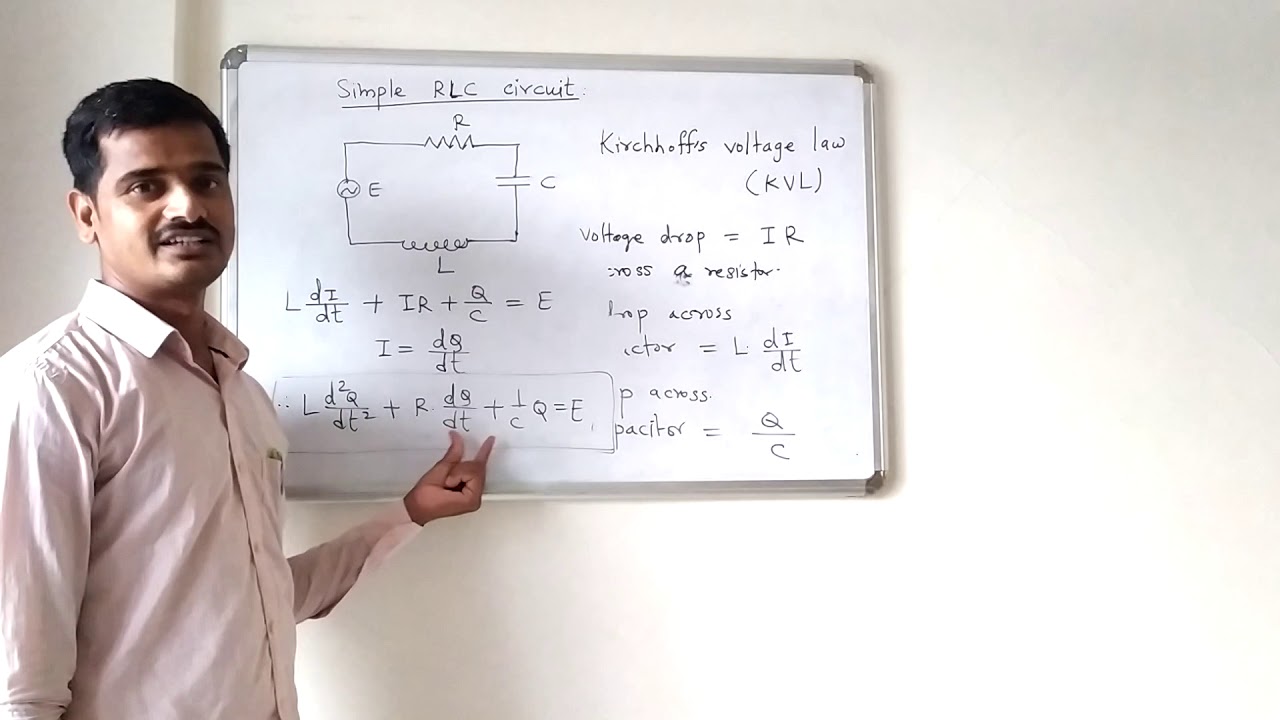 Simple RLC circuit:
R
E
C
L
L dI/dt + IR + Q/C = E
I = dQ/dt
∴ L d²Q/dt² + R. dQ/dt + 1/C Q = E.
Kirchhoff's voltage law
(KVL)
voltage drop = IR
ross a resistor.
across
ctor = L. dI/dt
p across.
pacitor = Q/C